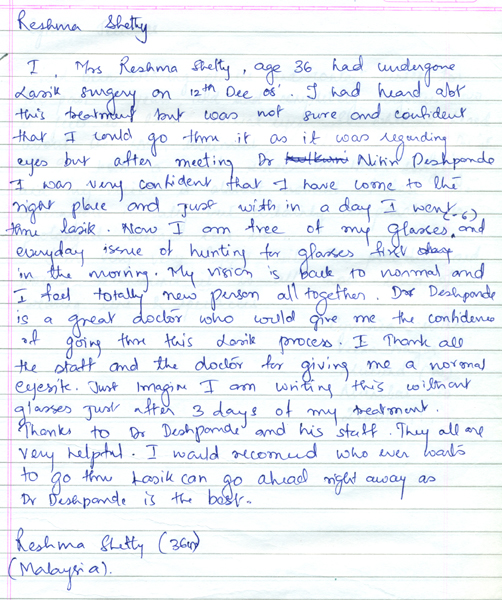 Reshma Shetty
I, Mrs Reshma Shetty, age 36 had undergone
Lasik surgery on 12th Dec 05'. I had heard abt
this treatment but was not sure and confident
that I could go thru it as it was regarding
eyes but after meeting Dr Nitin Deshpande
I was very confident that I have come to the
right place and just with in a day I went
thru lasik. Now I am free of my glasses (-6) and
everyday issue of hunting for glasses first
in the morning. My vision is back to normal and
I feel totally new person all together. Dr Deshpande
is a great doctor who would give me the confidence
of going thru this Lasik process. I Thank all
the staff and the doctor for giving me a normal
eyesik. Just Imagine I am writing this without
glasses just after 3 days of my treatment.
Thanks to Dr Deshpande and his staff. They all are
very helpful. I would recomend who ever wants
to go thru Lasik can go ahead right away as
Dr Deshpande is the best..
Reshma Shetty (36yr)
(Malaysia).